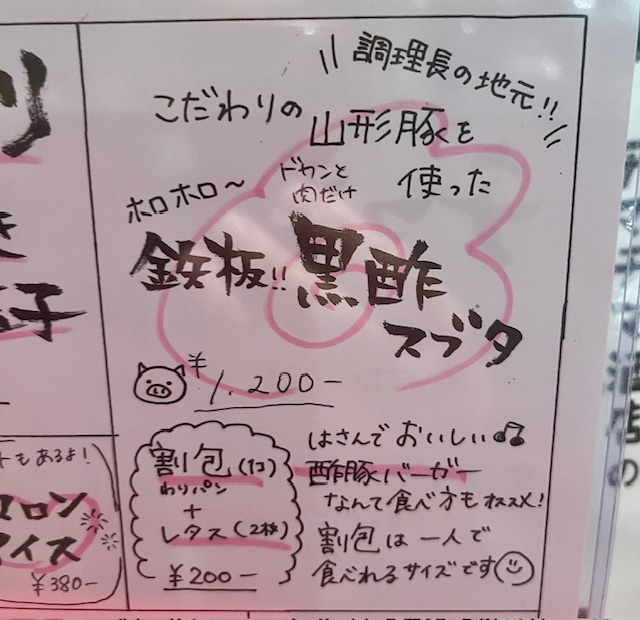 調理長の地元!!
こだわりの山形豚を
ドカンと肉だけ
使った
ホロホロ〜
鉄板!!黒酢
スブタ
¥1,200-
割包(1コ)
わりパン
+
レタス(2枚)
¥200-
はさんでおいしい♫
酢豚バーガー
なんて食べ方もオススメ!
割包は一人で
食べれるサイズです
リ
き
子
もあるよ!
ロン
アイス
¥380-
の